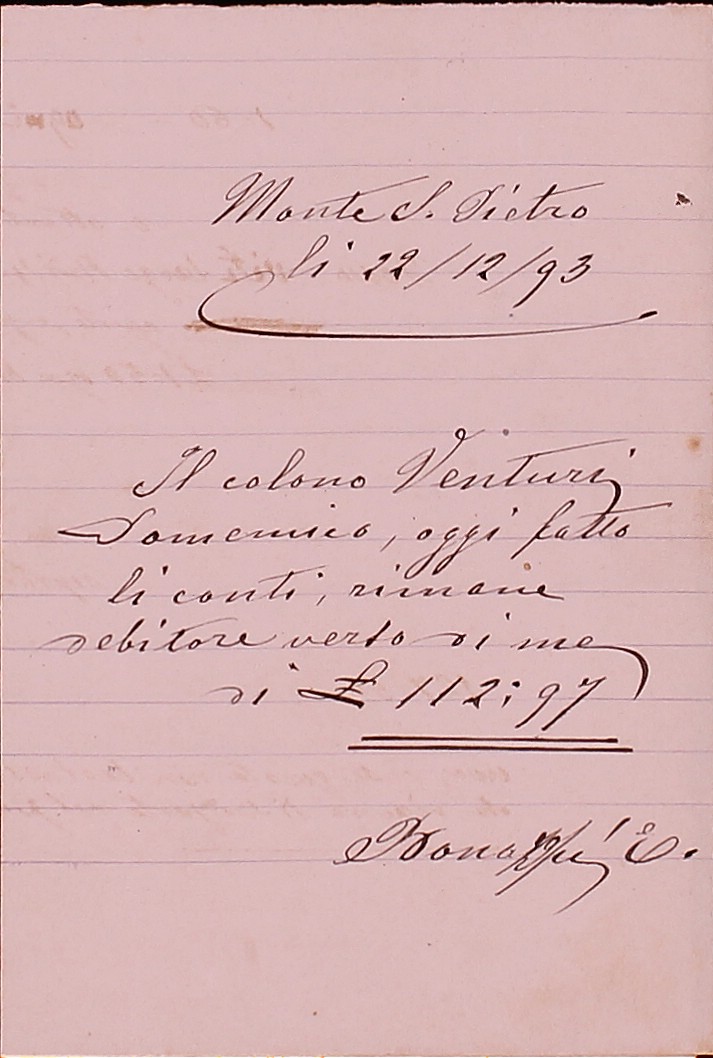 Monte S. Pietro
li 22/12/93
Il colono Venturi
Domenico, oggi fatto
li conti, rimane
debitore verso di me
di £ 112:97
E.